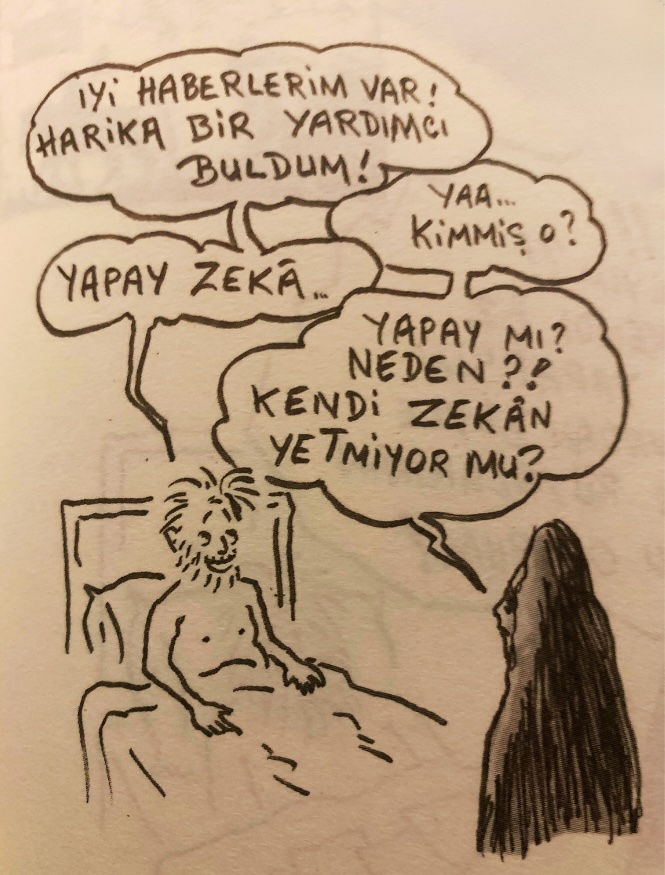 İYİ HABERLERİM VAR!
HARİKA BİR YARDIMCI
BULDUM!
YAA...
KİMMİŞ O?
YAPAY ZEKÂ...
YAPAY MI?
NEDEN??
KENDİ ZEKÂN
YETMİYOR MU?